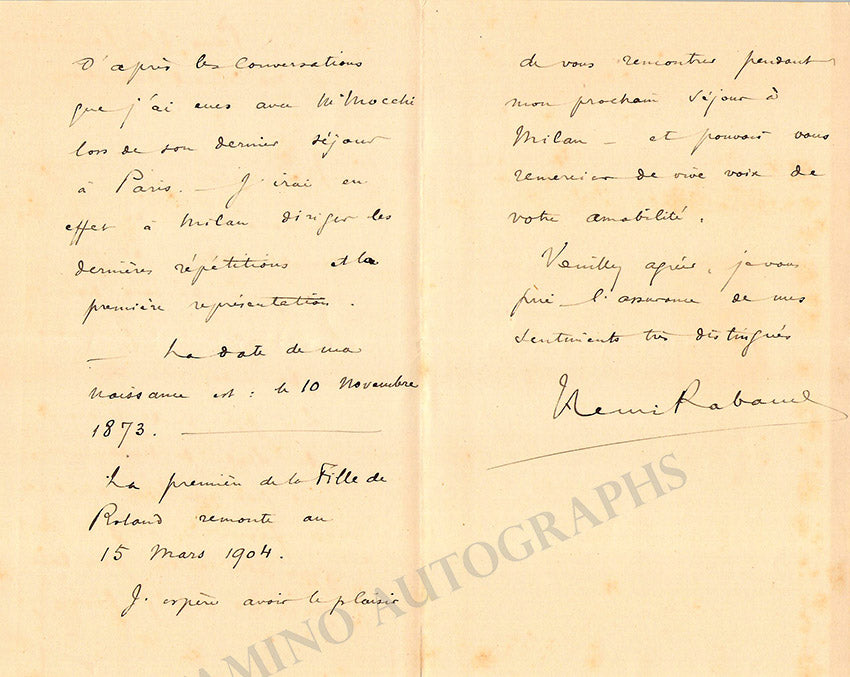 D'après les Conversations
que j'ai eues avec Mr Mocchi
lors de son dernier séjour
à Paris. — J'irai en
effet à Milan diriger les
dernières répétitions et la
première représentation.
— La date de ma
naissance est : le 10 Novembre
1873. —
La première de la Fille de
Roland remonte au
15 Mars 1904.
J'espère avoir le plaisir
de vous rencontrer pendant
mon prochain séjour à
Milan — et pouvoir vous
remercier de vive voix de
votre amabilité.
Veuillez agréer, je vous
prie — l'assurance de mes
sentiments très distingués
Henri Rabaud
TAMINO AUTOGRAPHS